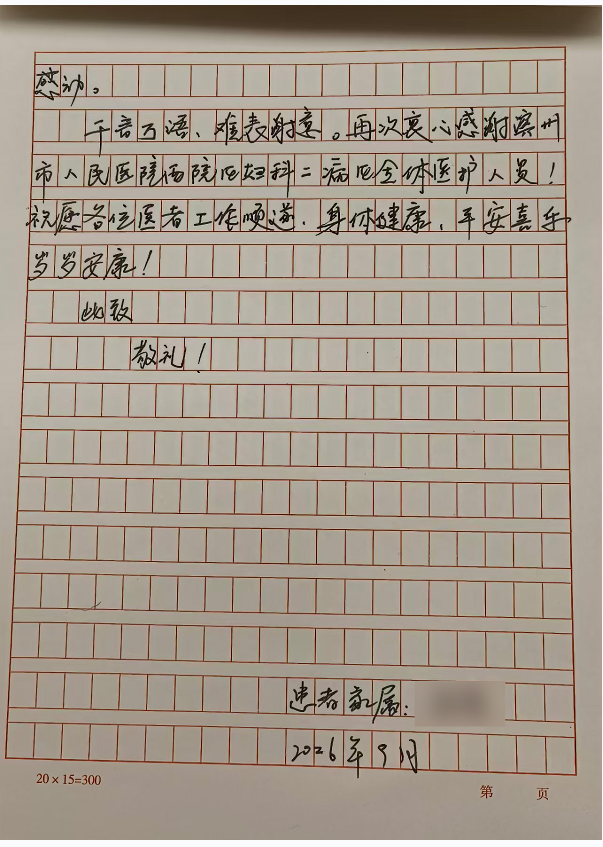 感动。
千言万语、难表谢意。再次衷心感谢滨州
市人民医院西院区妇科二病区全体医护人员！
祝愿各位医者工作顺遂、身体健康、平安喜乐
岁岁安康！
此致
敬礼！
患者家属：
2026年9月
20×15=300
第 页